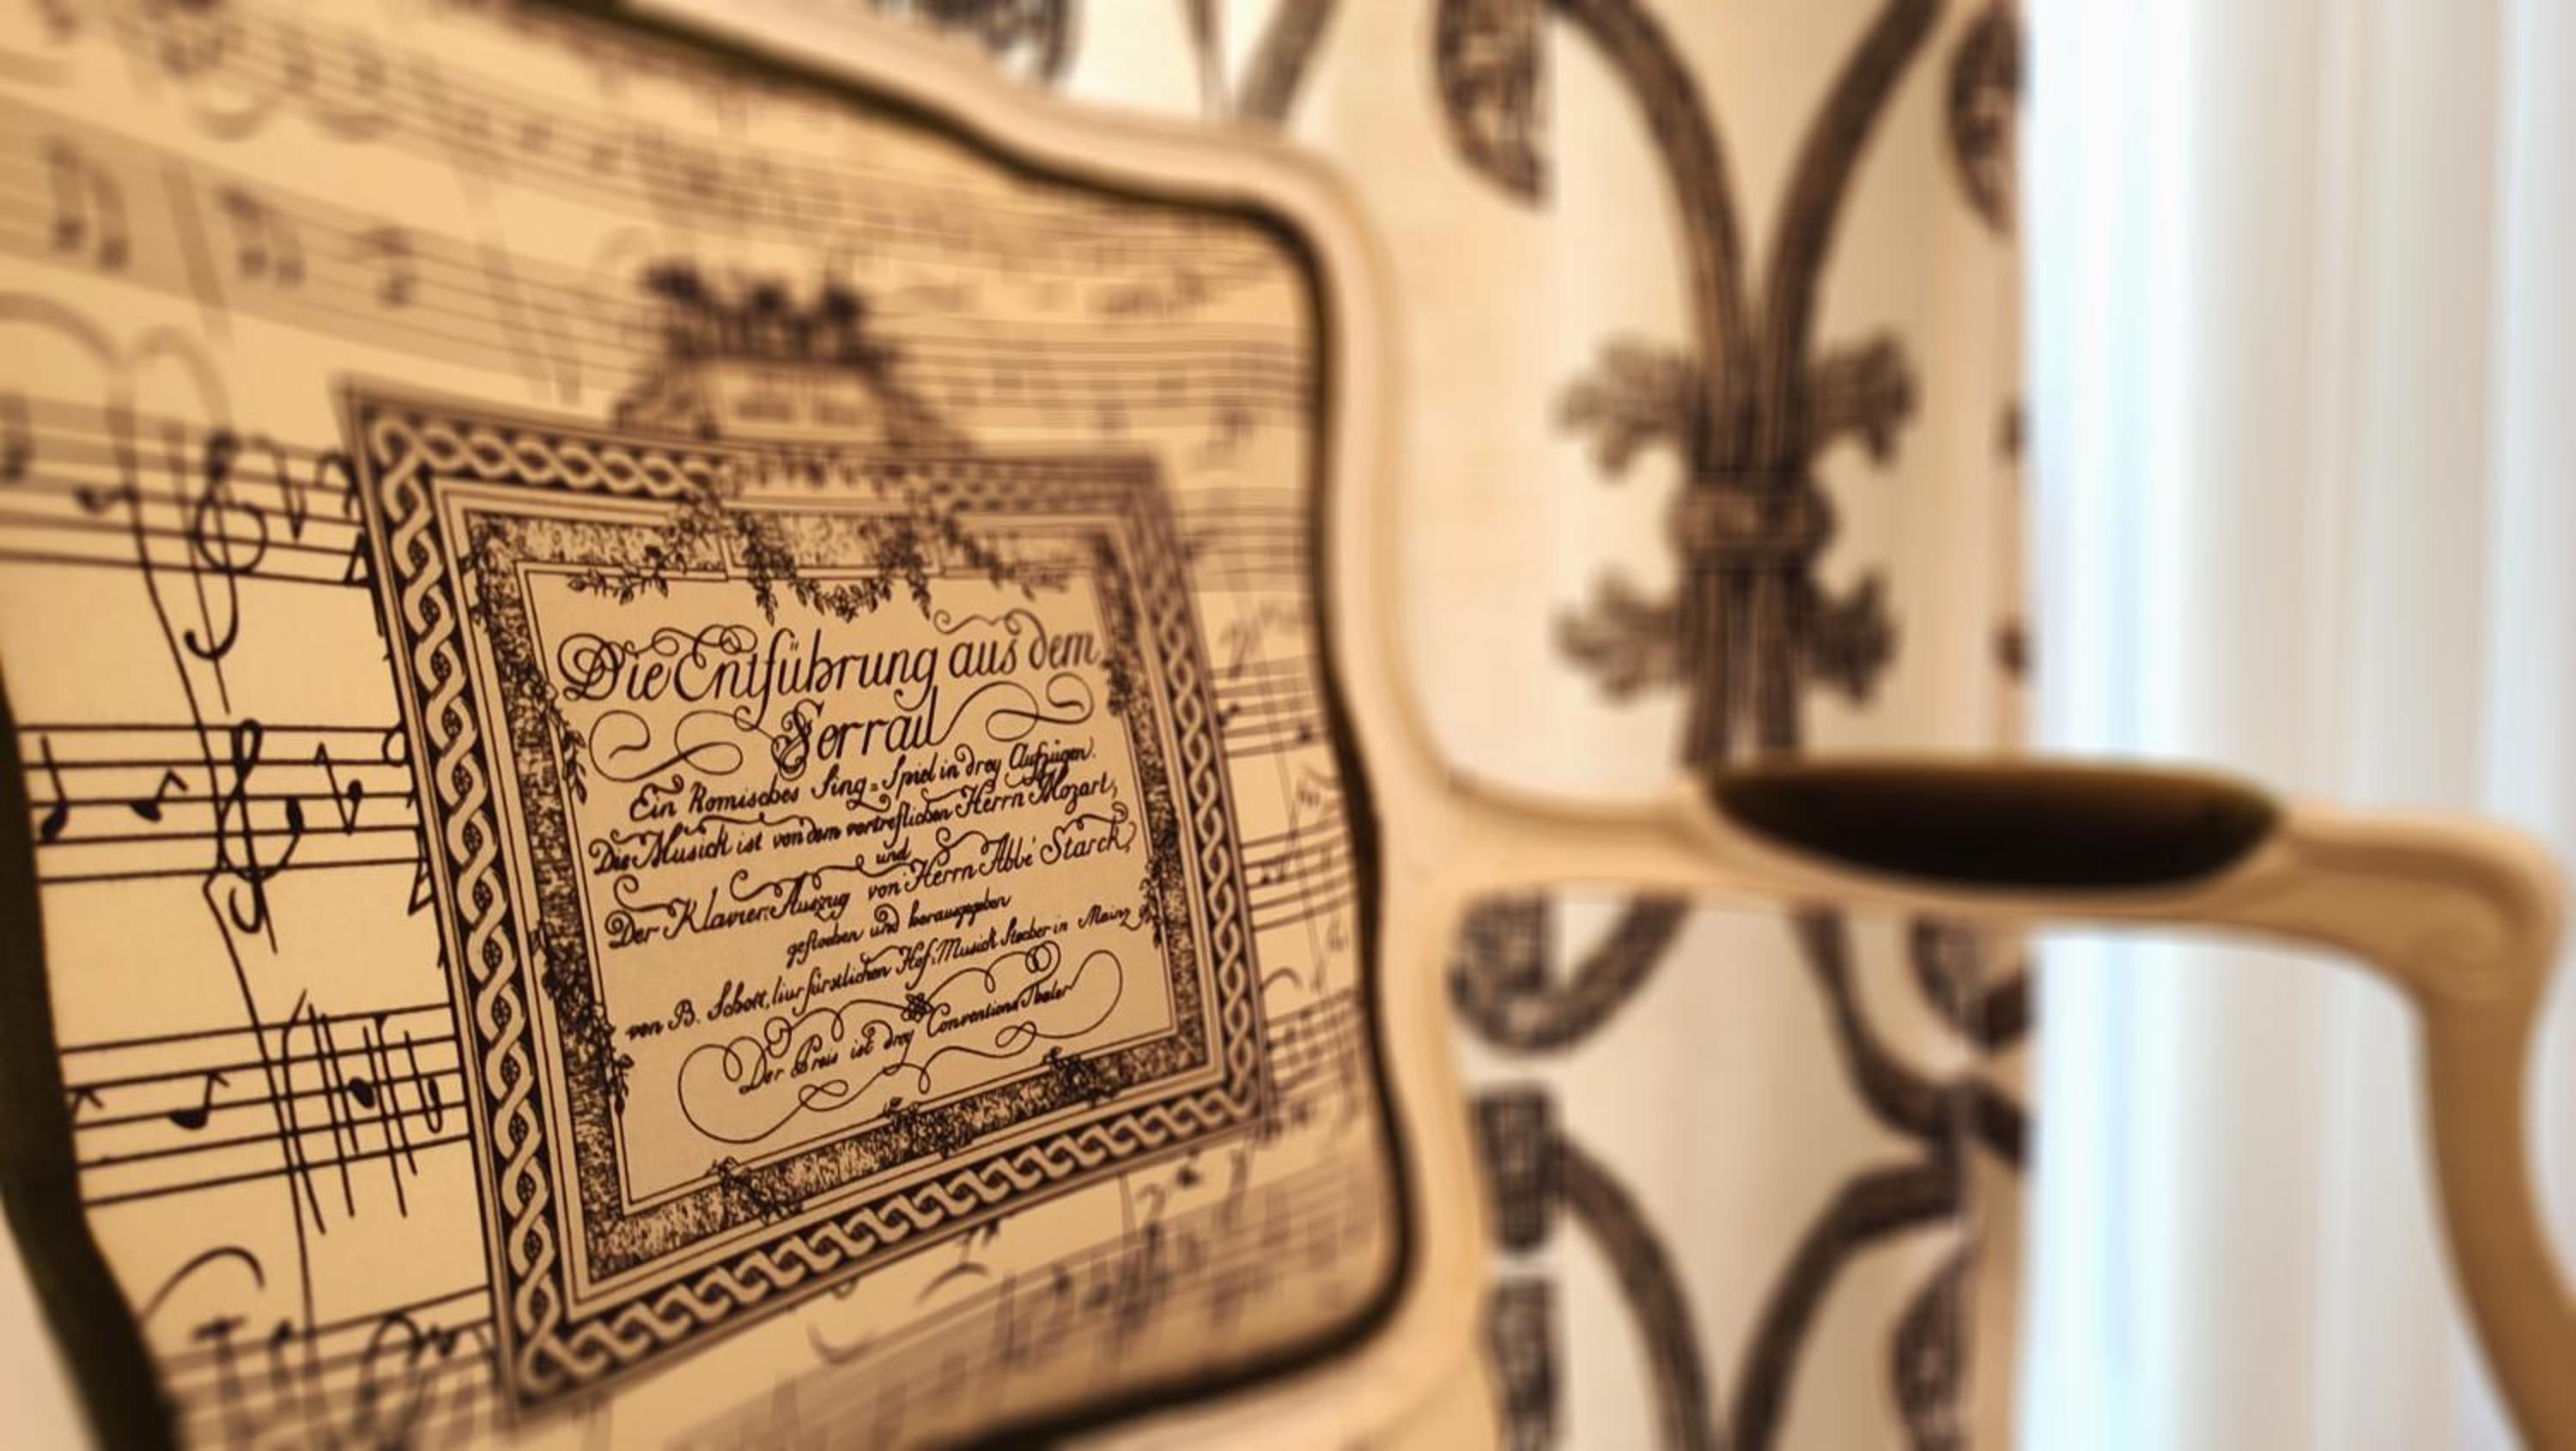 Die Entführung aus dem
Serrail
Ein Komisches Sing=Spiel in drey Aufzügen.
Die Musick ist von dem vortreflichen Herrn Mozart,
und
Der Klavier=Auszug von Herrn Abbé Starck,
gestochen und herausgegeben
von B. Schott, Hof=Musick Stecher in Mainz
Der Preis ist drey Conventions Thaler